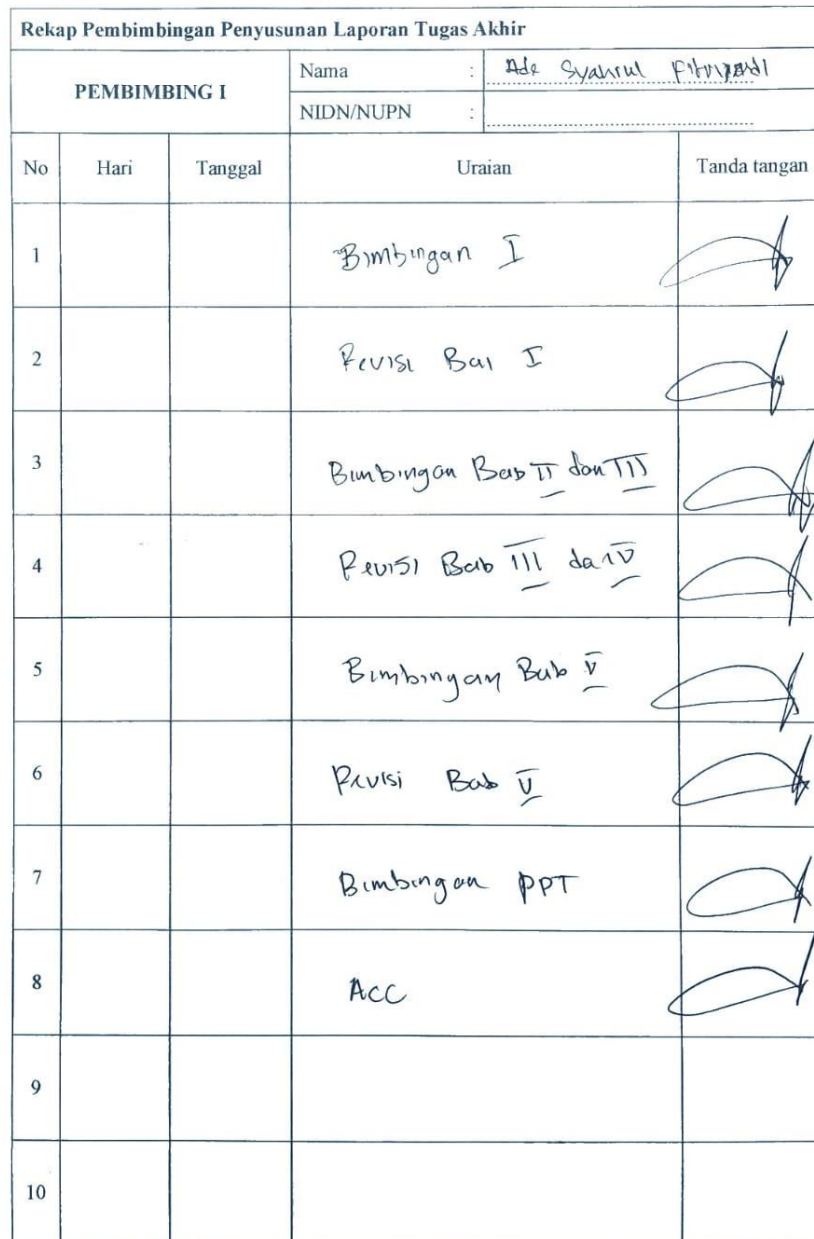 Rekap Pembimbingan Penyusunan Laporan Tugas Akhir
PEMBIMBING I
Nama : Ade Syahrul
NIDN/NUPN :
No Hari Tanggal Uraian Tanda tangan
1 Bimbingan I
2 Revisi Bab I
3 Bimbingan Bab II dan III
4 Revisi Bab III da IV
5 Bimbingan Bab V
6 Revisi Bab V
7 Bimbingan PPT
8 ACC
9
10